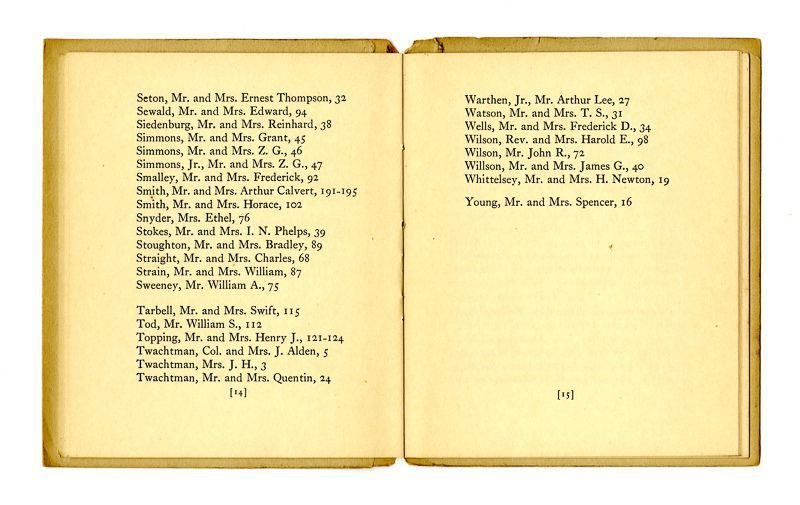 Seton, Mr. and Mrs. Ernest Thompson, 32
Sewald, Mr. and Mrs. Edward, 94
Siedenburg, Mr. and Mrs. Reinhard, 38
Simmons, Mr. and Mrs. Grant, 45
Simmons, Mr. and Mrs. Z. G., 46
Simmons, Jr., Mr. and Mrs. Z. G., 47
Smalley, Mr. and Mrs. Frederick, 92
Smith, Mr. and Mrs. Arthur Calvert, 191-195
Smith, Mr. and Mrs. Horace, 102
Snyder, Mrs. Ethel, 76
Stokes, Mr. and Mrs. I. N. Phelps, 39
Stoughton, Mr. and Mrs. Bradley, 89
Straight, Mr. and Mrs. Charles, 68
Strain, Mr. and Mrs. William, 87
Sweeney, Mr. William A., 75
Tarbell, Mr. and Mrs. Swift, 115
Tod, Mr. William S., 112
Topping, Mr. and Mrs. Henry J., 121-124
Twachtman, Col. and Mrs. J. Alden, 5
Twachtman, Mrs. J. H., 3
Twachtman, Mr. and Mrs. Quentin, 24
[14]
Warthen, Jr., Mr. Arthur Lee, 27
Watson, Mr. and Mrs. T. S., 31
Wells, Mr. and Mrs. Frederick D., 34
Wilson, Rev. and Mrs. Harold E., 98
Wilson, Mr. John R., 72
Willson, Mr. and Mrs. James G., 40
Whittelsey, Mr. and Mrs. H. Newton, 19
Young, Mr. and Mrs. Spencer, 16
[15]